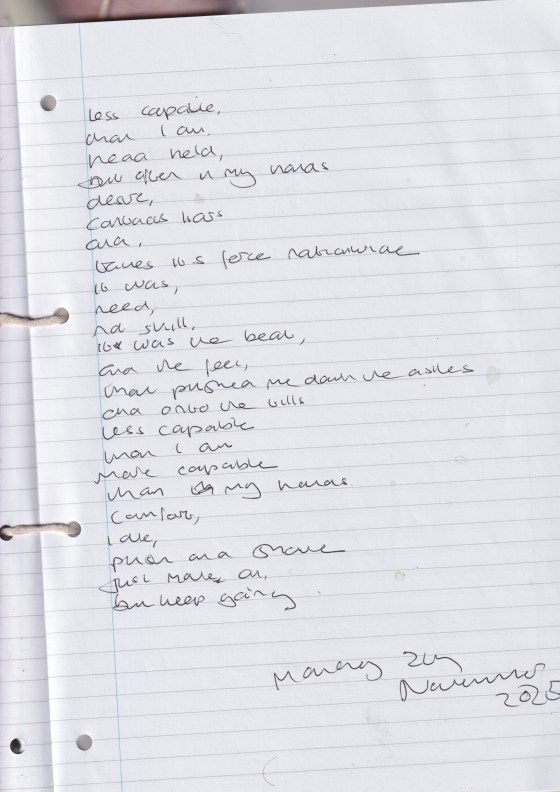 less capable,
than I am.
head held,
but often in my hands
desire,
and,
takes its force nationwide
it was,
need,
no skill,
it was the beat,
and the feet,
that pushed me down the aisles
and onto the tills
less capable
than I am
more capable
than my hands.
comfort,
I ale,
push and shove
just make on,
but keep going.
Monday
November
2025